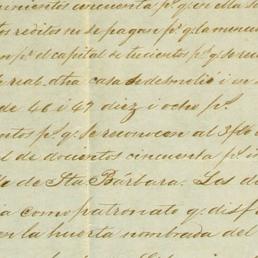 cincuenta ps. q. en ella se
tos reditos no se pagase ps. q. la
el capital de trecientos ps. q. se
real. dha casa se demolió i en
de 46 i 47 diez i ocho ps.
tos ps. q. se reconocen al 3 p%
l de docientos cincuenta ps.
lo de Sta. Bárbara. Los
ia como patronato q. disf
en la huerta nombrada del